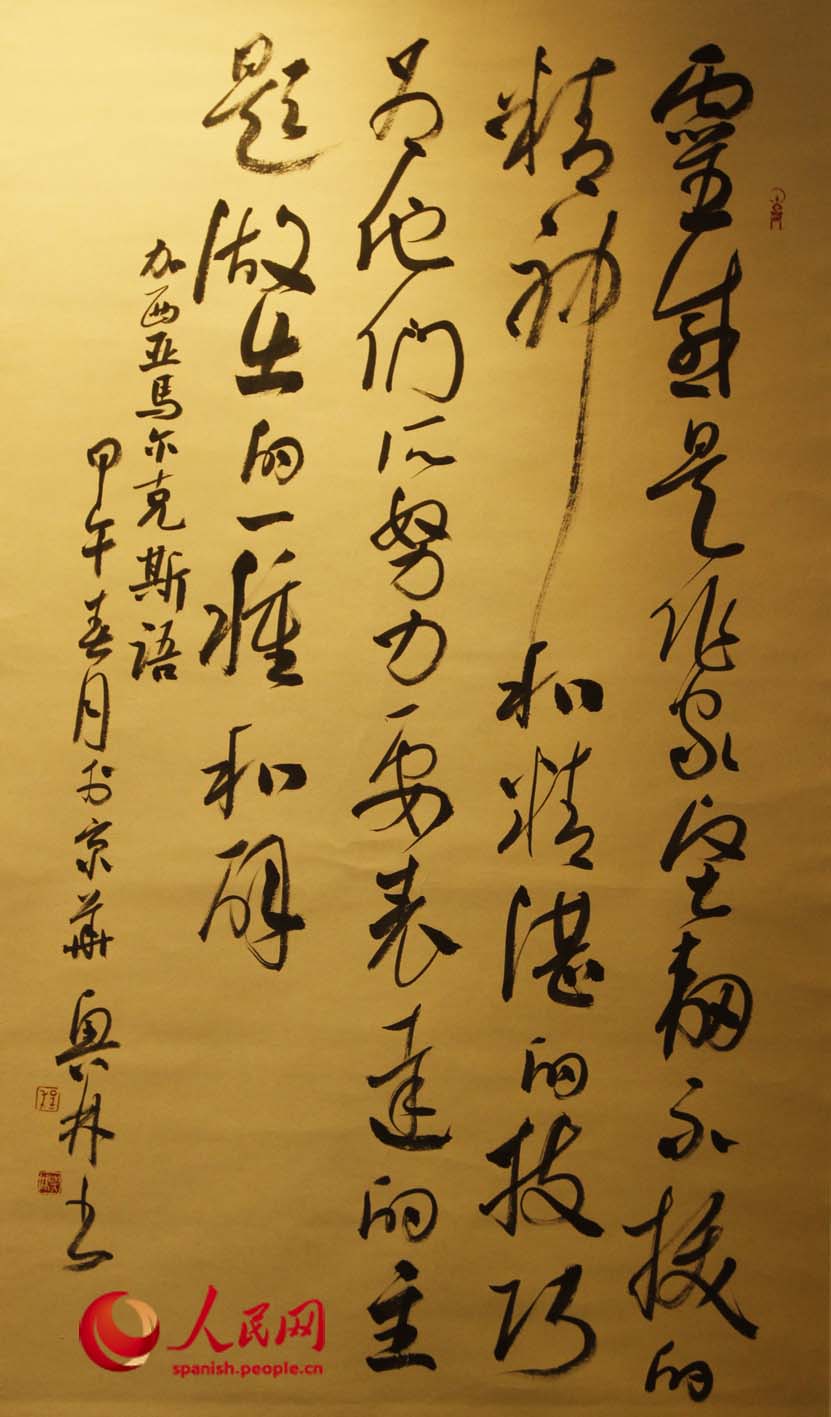 靈感是作家坚韧不拔的
精神和精湛的技巧
为他们所努力要表达的主
题做出的一种和解
加西亚馬尔克斯語
甲午春月於京華興林书
人民网
spanish.people.cn